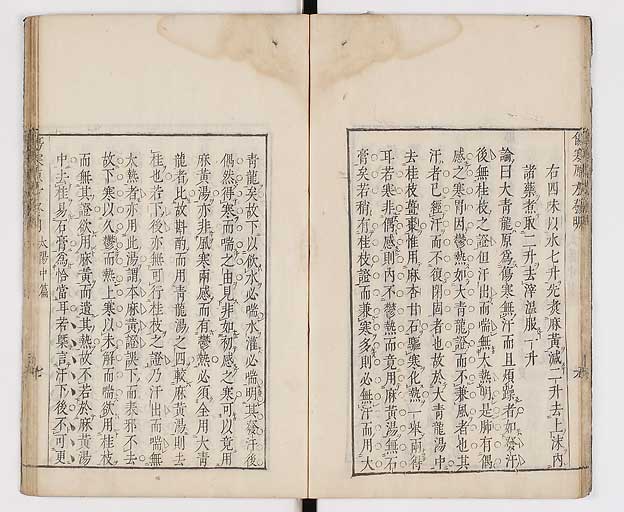 右四味以水七升先煑麻黃減二升去上沫內
諸藥煮取二升去滓溫服一升
論曰大青龍原爲傷寒無汗而且煩躁者如發汗
後無桂枝之證但汗出而喘無大熱明是肺有偶
感之寒胃因鬱熱如大青龍證而不兼風者也其
汗者已經汗而不復閉固者也故於大青龍湯中
去桂枝薑棗惟用麻杏甘石驅寒化熱一舉兩得
耳若寒非偶感則內不鬱熱而竟用麻黃湯無石
膏矣若稍有桂枝證而兼寒多則必無汗而用大
青龍矣故下以飲水必喘水灌必喘明其發汗後
偶然得寒而喘之由見非如初感之寒可以竟用
麻黃湯亦非風寒兩感而有鬱熱必須全用大青
龍者比故斟酌而用青龍湯之四較麻黃湯則去
桂也若下後亦無可行桂枝之證乃汗出而喘無
大熱者亦用此湯謂本麻黃證誤下而表邪不去
故下寒以久鬱而熱上寒以未解而喘欲用桂枝
而無其證欲用麻黃而遺其熱故不若於麻黃湯
中去桂易石膏爲恰當耳若槩言汗下後不可更
太陽中篇